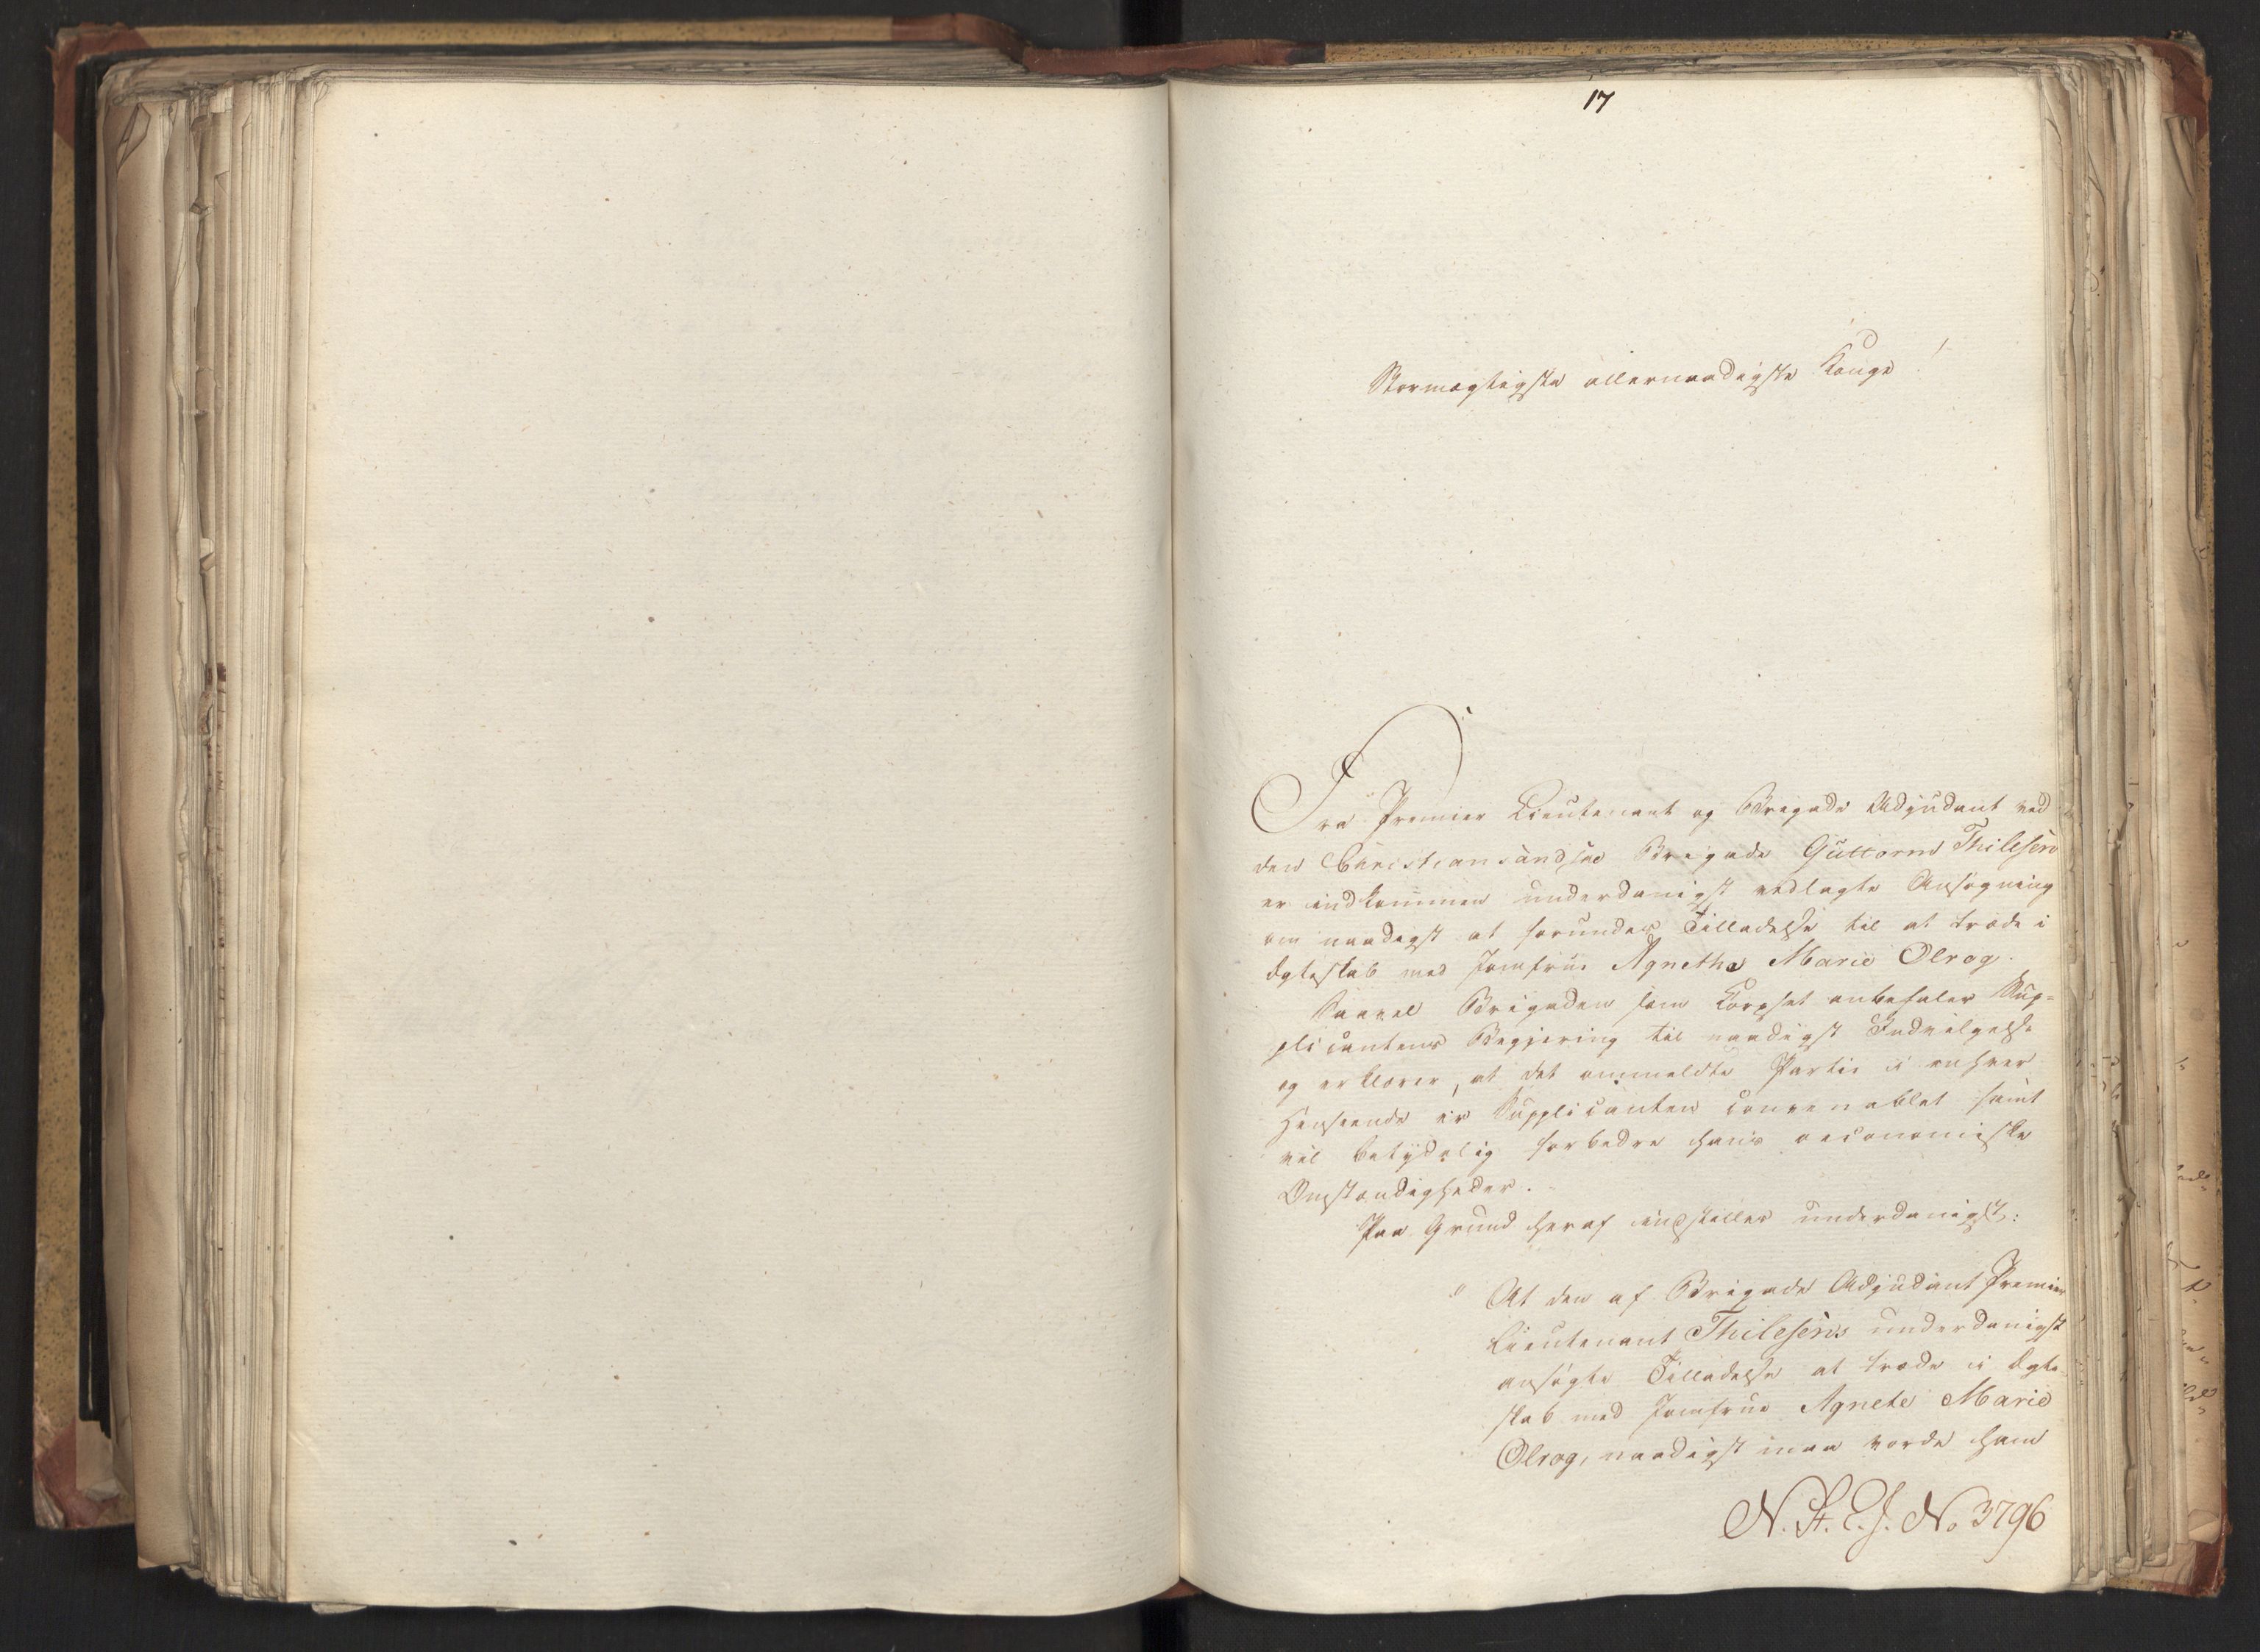 17
Stormægtigste allernaadigste Konge!
Fra Premier Lieutenant og Brigade Adjudant ved
den Christiansandske Brigade Guttorm Thilesen
er indkommen underdanigst vedlagte Ansøgning
om naadigst at forundes Tilladelse til at træde i
Ægteskab med Jomfrue Agnetha Marie Olrog.
Saavel Brigaden som Corpset anbefaler Sup=
plicantens Begjering til naadigst Indvilgelse
og erklærer, at det ommeldte Partie i enhver
Henseende er Supplicanten convenablet samt
vil betydelig forbedre hans oeconomiske
Omstændigheder.
Paa Grund heraf indstilles underdanigst:
" At den af Brigade Adjudant Premier
Lieutenant Thilesens underdanigst
ansøgte Tilladelse at træde i Ægte-
skab med Jomfrue Agnete Marie
Olrog, naadigst maa vorde ham
N. St. E. J. No 3796